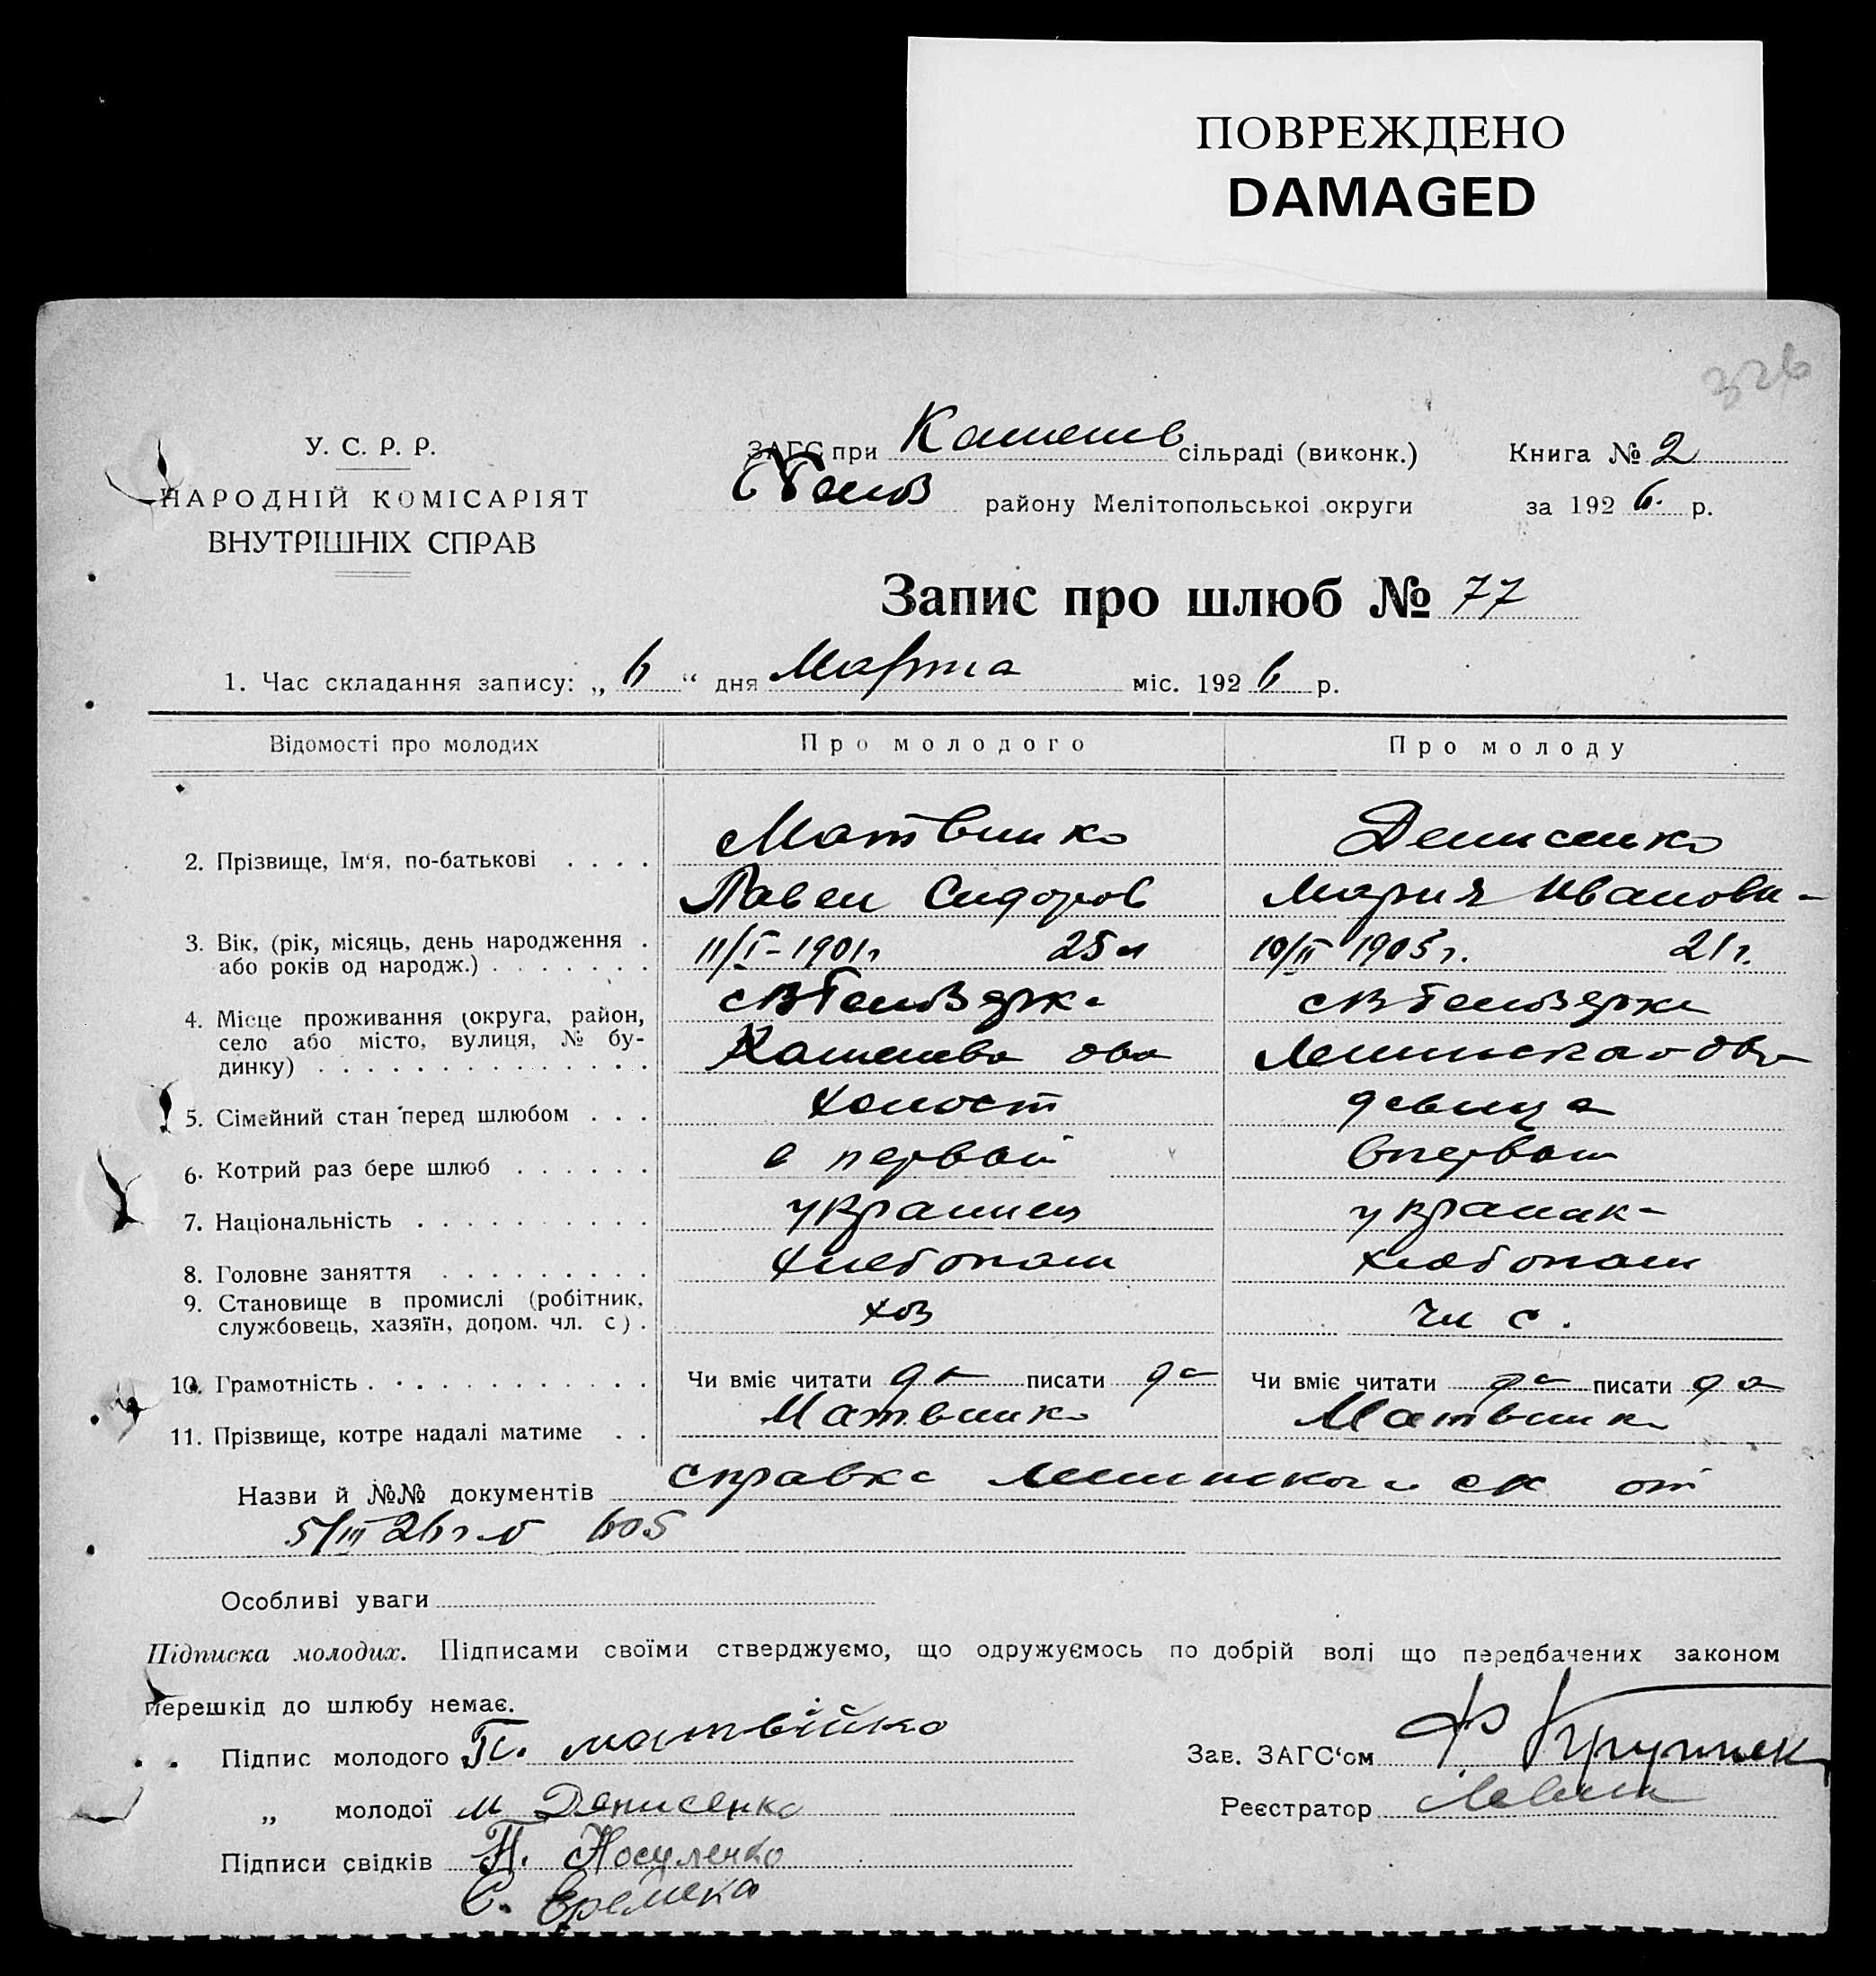 ПОВРЕЖДЕНО
DAMAGED
326
У. С. Р. Р.
НАРОДНІЙ КОМІСАРІЯТ
ВНУТРІШНІХ СПРАВ
ЗАГС при сільраді (виконк.)
району Мелітопольської округи
Книга № 2
за 1926. р.
Запис про шлюб № 77
1. Час складання запису: „ 6 “ дня Марта міс. 1926 р.
Відомості про молодих
Про молодого
Про молоду
2. Прізвище, Ім‘я, по-батькові . . . .
Матвийко
Павел Сидоров
Денисенко
Мария Иванови-
3. Вік, (рік, місяць, день народження .
або років од народж.) . . . . . . .
11/I-1901г 25 л
10/II 1905г. 21г.
4. Місце проживання (округа, район,
село або місто, вулиця, № бу-
динку) . . . . . . . . . . . . . . .
5. Сімейний стан перед шлюбом . . .
холост
девица
6. Котрий раз бере шлюб . . . . . .
в первой
впервой
7. Національність . . . . . . . . . .
украинец
украинк-
8. Головне заняття . . . . . . . . .
хлебопаш
хлебопаш
9. Становище в промислі (робітник,
службовець, хазяїн, допом. чл. с) .
хоз
чл с.
10. Грамотність . . . . . . . . . . . .
Чи вміє читати да писати да
Чи вміє читати да писати да
11. Прізвище, котре надалі матиме . .
Матвийко
Матвийко
Назви й №№ документів справка от
5/III 26г 605
Особливі уваги
Підписка молодих. Підписами своїми стверджуємо, що одружуємось по добрій волі що передбачених законом
перешкід до шлюбу немає.
Підпис молодого П. матвійко
Зав. ЗАГС‘ом
„ молодої М Денисенко
Реєстратор
Підписи свідків П. Носуленко
С.